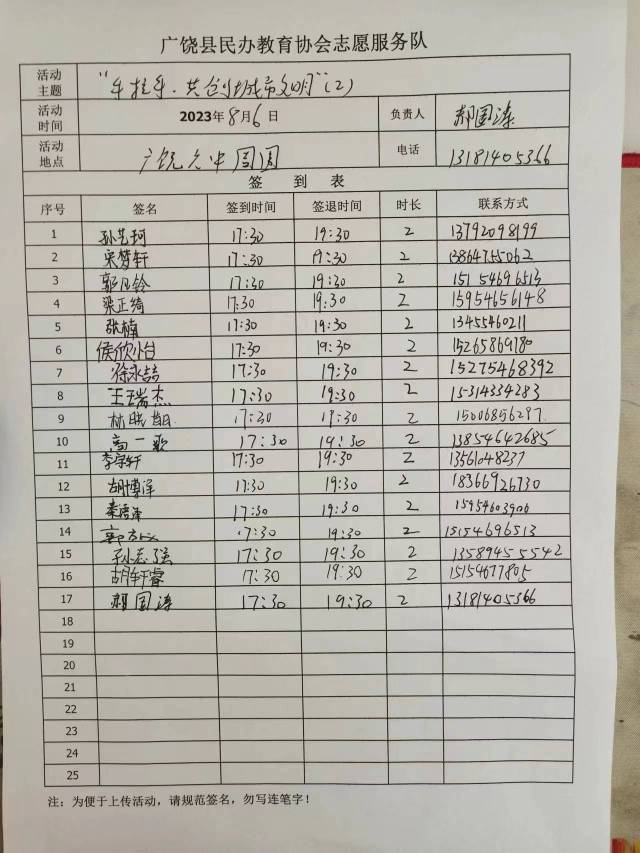 广饶县民办教育协会志愿服务队
活动主题 "手拉手·共创城市文明"(2)
活动时间 2023年8月6日 负责人 郝国涛
活动地点 广饶六中周围 电话 13181405366
签 到 表
序号 签名 签到时间 签退时间 时长 联系方式
1 孙艺珂 17:30 19:30 2 13792098199
2 宋梦轩 17:30 19:30 2 13864755062
3 郭乃铃 17:30 19:30 2 15154696513
4 梁正绮 17:30 19:30 2 15954656148
5 张楠 17:30 19:30 2 13455460211
6 侯欣怡 17:30 19:30 2 15265869780
7 徐永喆 17:30 19:30 2 15275468392
8 王瑞杰 17:30 19:30 2 15314334283
9 17:30 19:30 2 15006856297
10 高一歌 17:30 19:30 2 13854642685
11 李宗轩 17:30 19:30 2 13561048237
12 胡博泽 17:30 19:30 2 18366926730
13 17:30 19:30 2 15954603906
14 17:30 19:30 2 15154696513
15 孙志强 17:30 19:30 2 13589455542
16 胡轩睿 17:30 19:30 2 15154677805
17 郝国涛 17:30 19:30 2 13181405366
18
19
20
21
22
23
24
25
注：为便于上传活动，请规范签名，勿写连笔字！